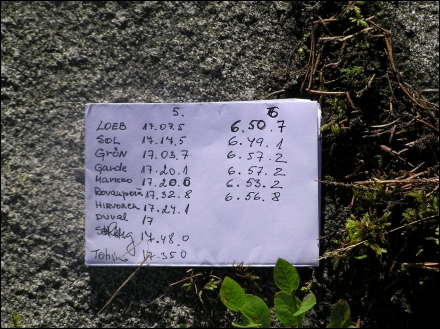 5. 6
LOEB 17.07.5 6.50.7
SOL 17.14.5 6.49.1
GRÖN 17.03.7 6.57.2
Garde 17.20.1 6.57.2
Mancko 17.20.6 6.53.2
Rovanperä 17.32.8 6.56.8
HIRVONEN 17.24.1
DUVAL 17
17.48.0
17.35.0